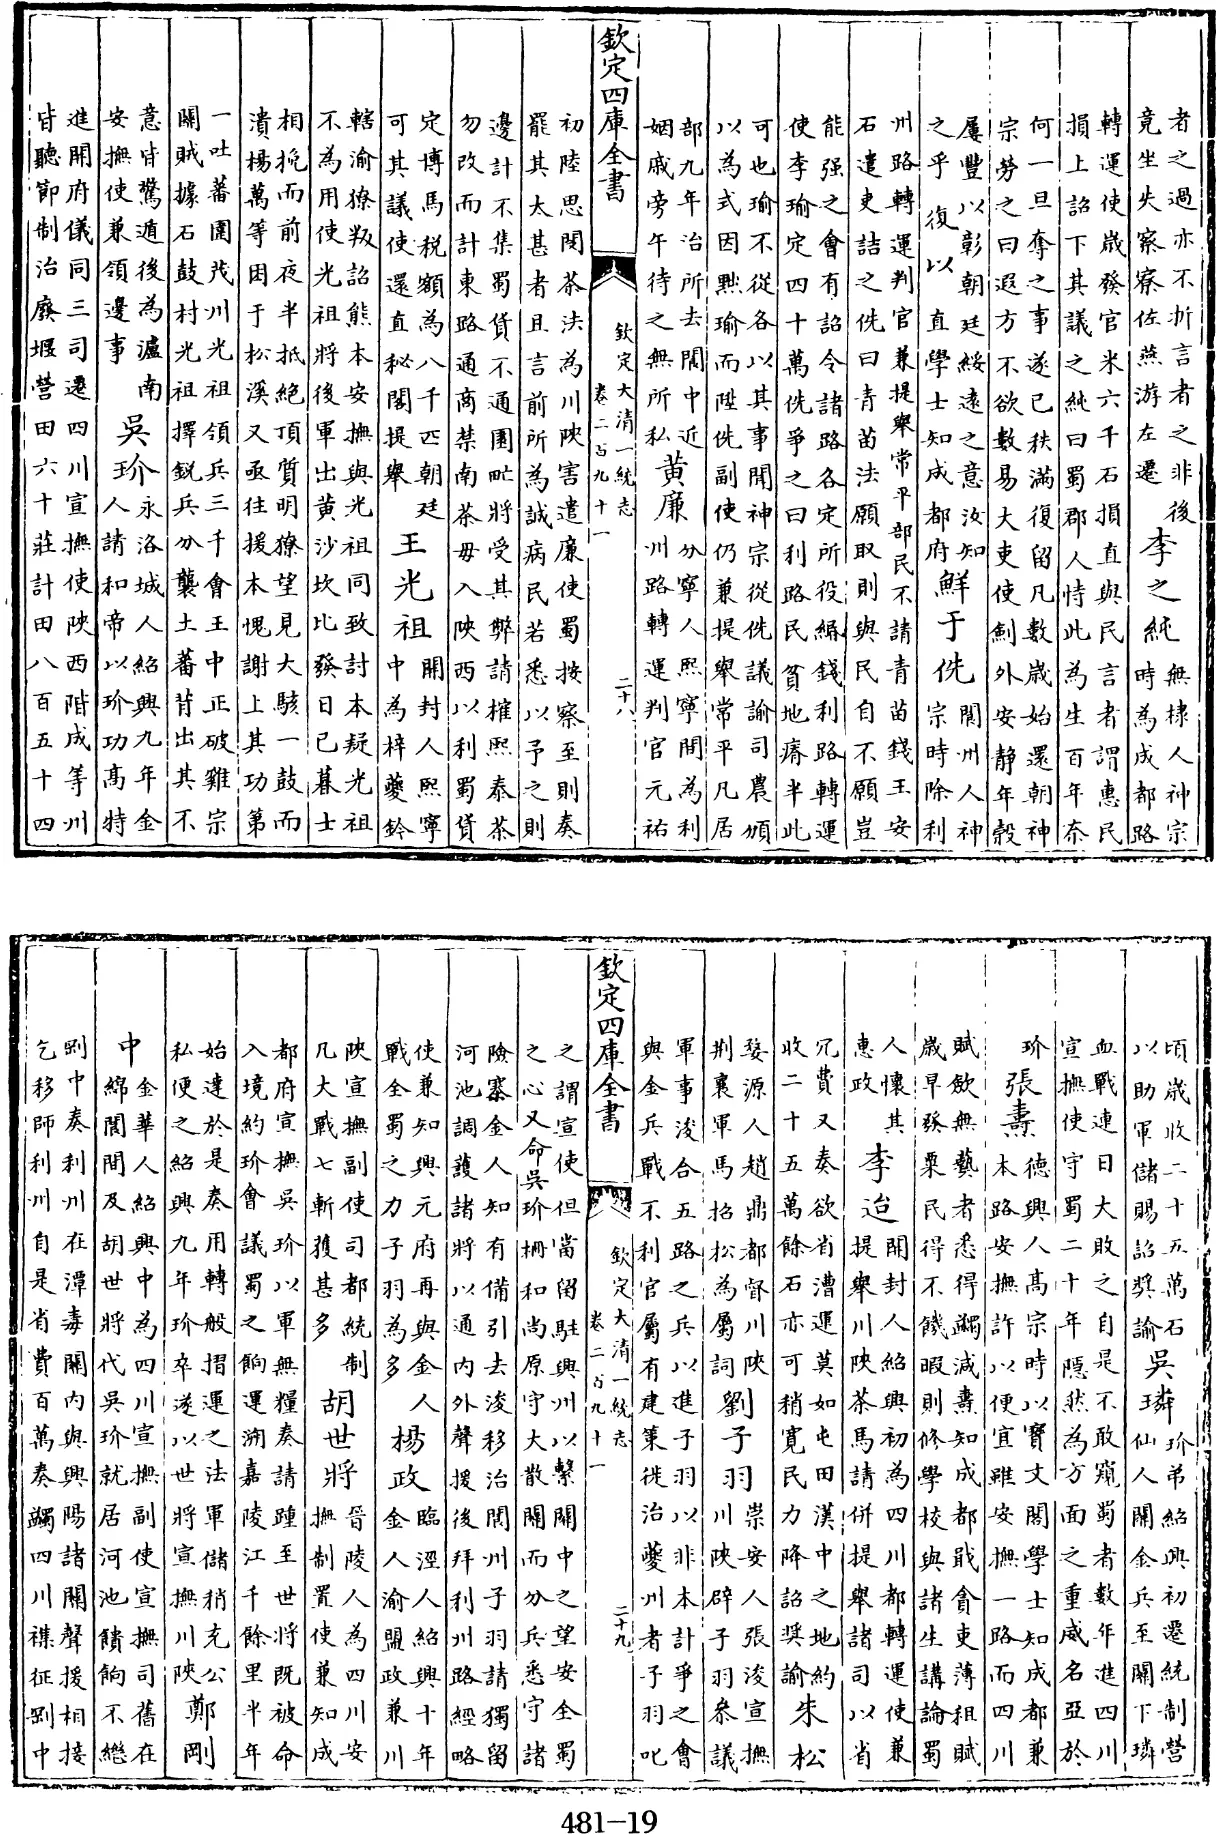 者之過亦不折言者之非後
竟坐失察寮佐燕游左遷
李之純
無棣人神宗
時為成都路
轉運使歲發官米六千石損直與民言者謂惠民
損上詔下其議之純曰蜀郡人恃此為生百年奈
何一旦奪之事遂已秩滿復留凡數歲始還朝神
宗勞之曰遐方不欲數易大吏使劍外安靜年穀
屢豐以彰朝廷綏遠之意汝知
之乎復以直學士知成都府
鮮于侁
閬州人神
宗時除利
州路轉運判官兼提舉常平部民不請青苗錢王安
石遣吏詰之侁曰青苗法願取則與民自不願豈
能强之會有詔令諸路各定所役緡錢利路轉運
使李瑜定四十萬侁爭之曰利路民貧地瘠半此
可也瑜不從各以其事聞神宗從侁議諭司農頒
以為式因黜瑜而陞侁副使仍兼提舉常平凡居
部九年治所去閬中近
姻戚旁午待之無所私
黃廉
分寧人熙寧間為利
州路轉運判官元祐
欽定四庫全書
欽定大清一統志
卷二百九十一
二十八
初陸思閔茶法為川陜害遣廉使蜀按察至則奏
罷其太甚者且言前所為誠病民若悉以予之則
邊計不集蜀貨不通園甿將受其弊請搉熙秦茶
勿改而計東路通商禁南茶毋入陜西以利蜀貨
定博馬税額為八千匹朝廷
可其議使還直秘閣提舉
王光祖
開封人熙寧
中為梓夔鈐
轄渝獠叛詔熊本安撫與光祖同致討本疑光祖
不為用使光祖將後軍出黃沙坎比發日已暮士
相挽而前夜半抵絕頂質明獠望見大駭一鼓而
潰楊萬等困于松溪又亟往援本愧謝上其功第
一吐蕃圍茂川光祖領兵三千會王中正破雞宗
關賊據石鼓村光祖擇銳兵分襲土蕃背出其不
意皆驚遁後為瀘南
安撫使兼領邊事
吳玠
永洛城人紹興九年金
人請和帝以玠功高特
進開府儀同三司遷四川宣撫使陜西階成等州
皆聽節制治廢堰營田六十莊計田八百五十四
頃歲收二十五萬石
以助軍儲賜詔奬諭
吳璘
玠弟紹興初遷統制營
仙人關金兵至關下璘
血戰連日大敗之自是不敢窺蜀者數年進四川
宣撫使守蜀二十年隱然為方面之重威名亞於
玠
張燾
德興人高宗時以寶文閣學士知成都兼
本路安撫許以便宜雖安撫一路而四川
賦斂無藝者悉得蠲減燾知成都戢貪吏薄租賦
歲早發粟民得不饑暇則修學校與諸生講論蜀
人懷其
惠政
李迨
開封人紹興初為四川都轉運使兼
提舉川陜茶馬請併提舉諸司以省
冗費又奏欲省漕運莫如屯田漢中之地約
收二十五萬餘石亦可稍寛民力降詔奬諭
朱松
婺源人趙鼎都督川陜
荆襄軍馬招松為屬詞
劉子羽
崇安人張浚宣撫
川陜辟子羽叅議
軍事浚合五路之兵以進子羽以非本計爭之會
與金兵戰不利官屬有建策徙治夔州者子羽叱
欽定四庫全書
欽定大清一統志
卷二百九十一
二十九
之謂宣使但當留駐興州以繫關中之望安全蜀
之心又命吳玠柵和尚原守大散關而分兵悉守諸
險寨金人知有備引去浚移治閬州子羽請獨留
河池調護諸將以通內外聲援後拜利州路經略
使兼知興元府再與金人
戰全蜀之力子羽為多
楊政
臨涇人紹興十年
金人渝盟政兼川
陜宣撫副使司都統制
凡大戰七斬獲甚多
胡世將
晉陵人為四川安
撫制置使兼知成
都府宣撫吳玠以軍無糧奏請踵至世將既被命
入境約玠會議蜀之餉運溯嘉陵江千餘里半年
始達於是奏用轉般摺運之法軍儲稍充公
私便之紹興九年玠卒遂以世將宣撫川陜
鄭剛
中
金華人紹興中為四川宣撫副使宣撫司舊在
綿閬間及胡世將代吳玠就居河池饋餉不繼
剛中奏利州在潭毒關內與興陽諸關聲援相接
乞移師利州自是省費百萬奏蠲四川襍征剛中
481-19